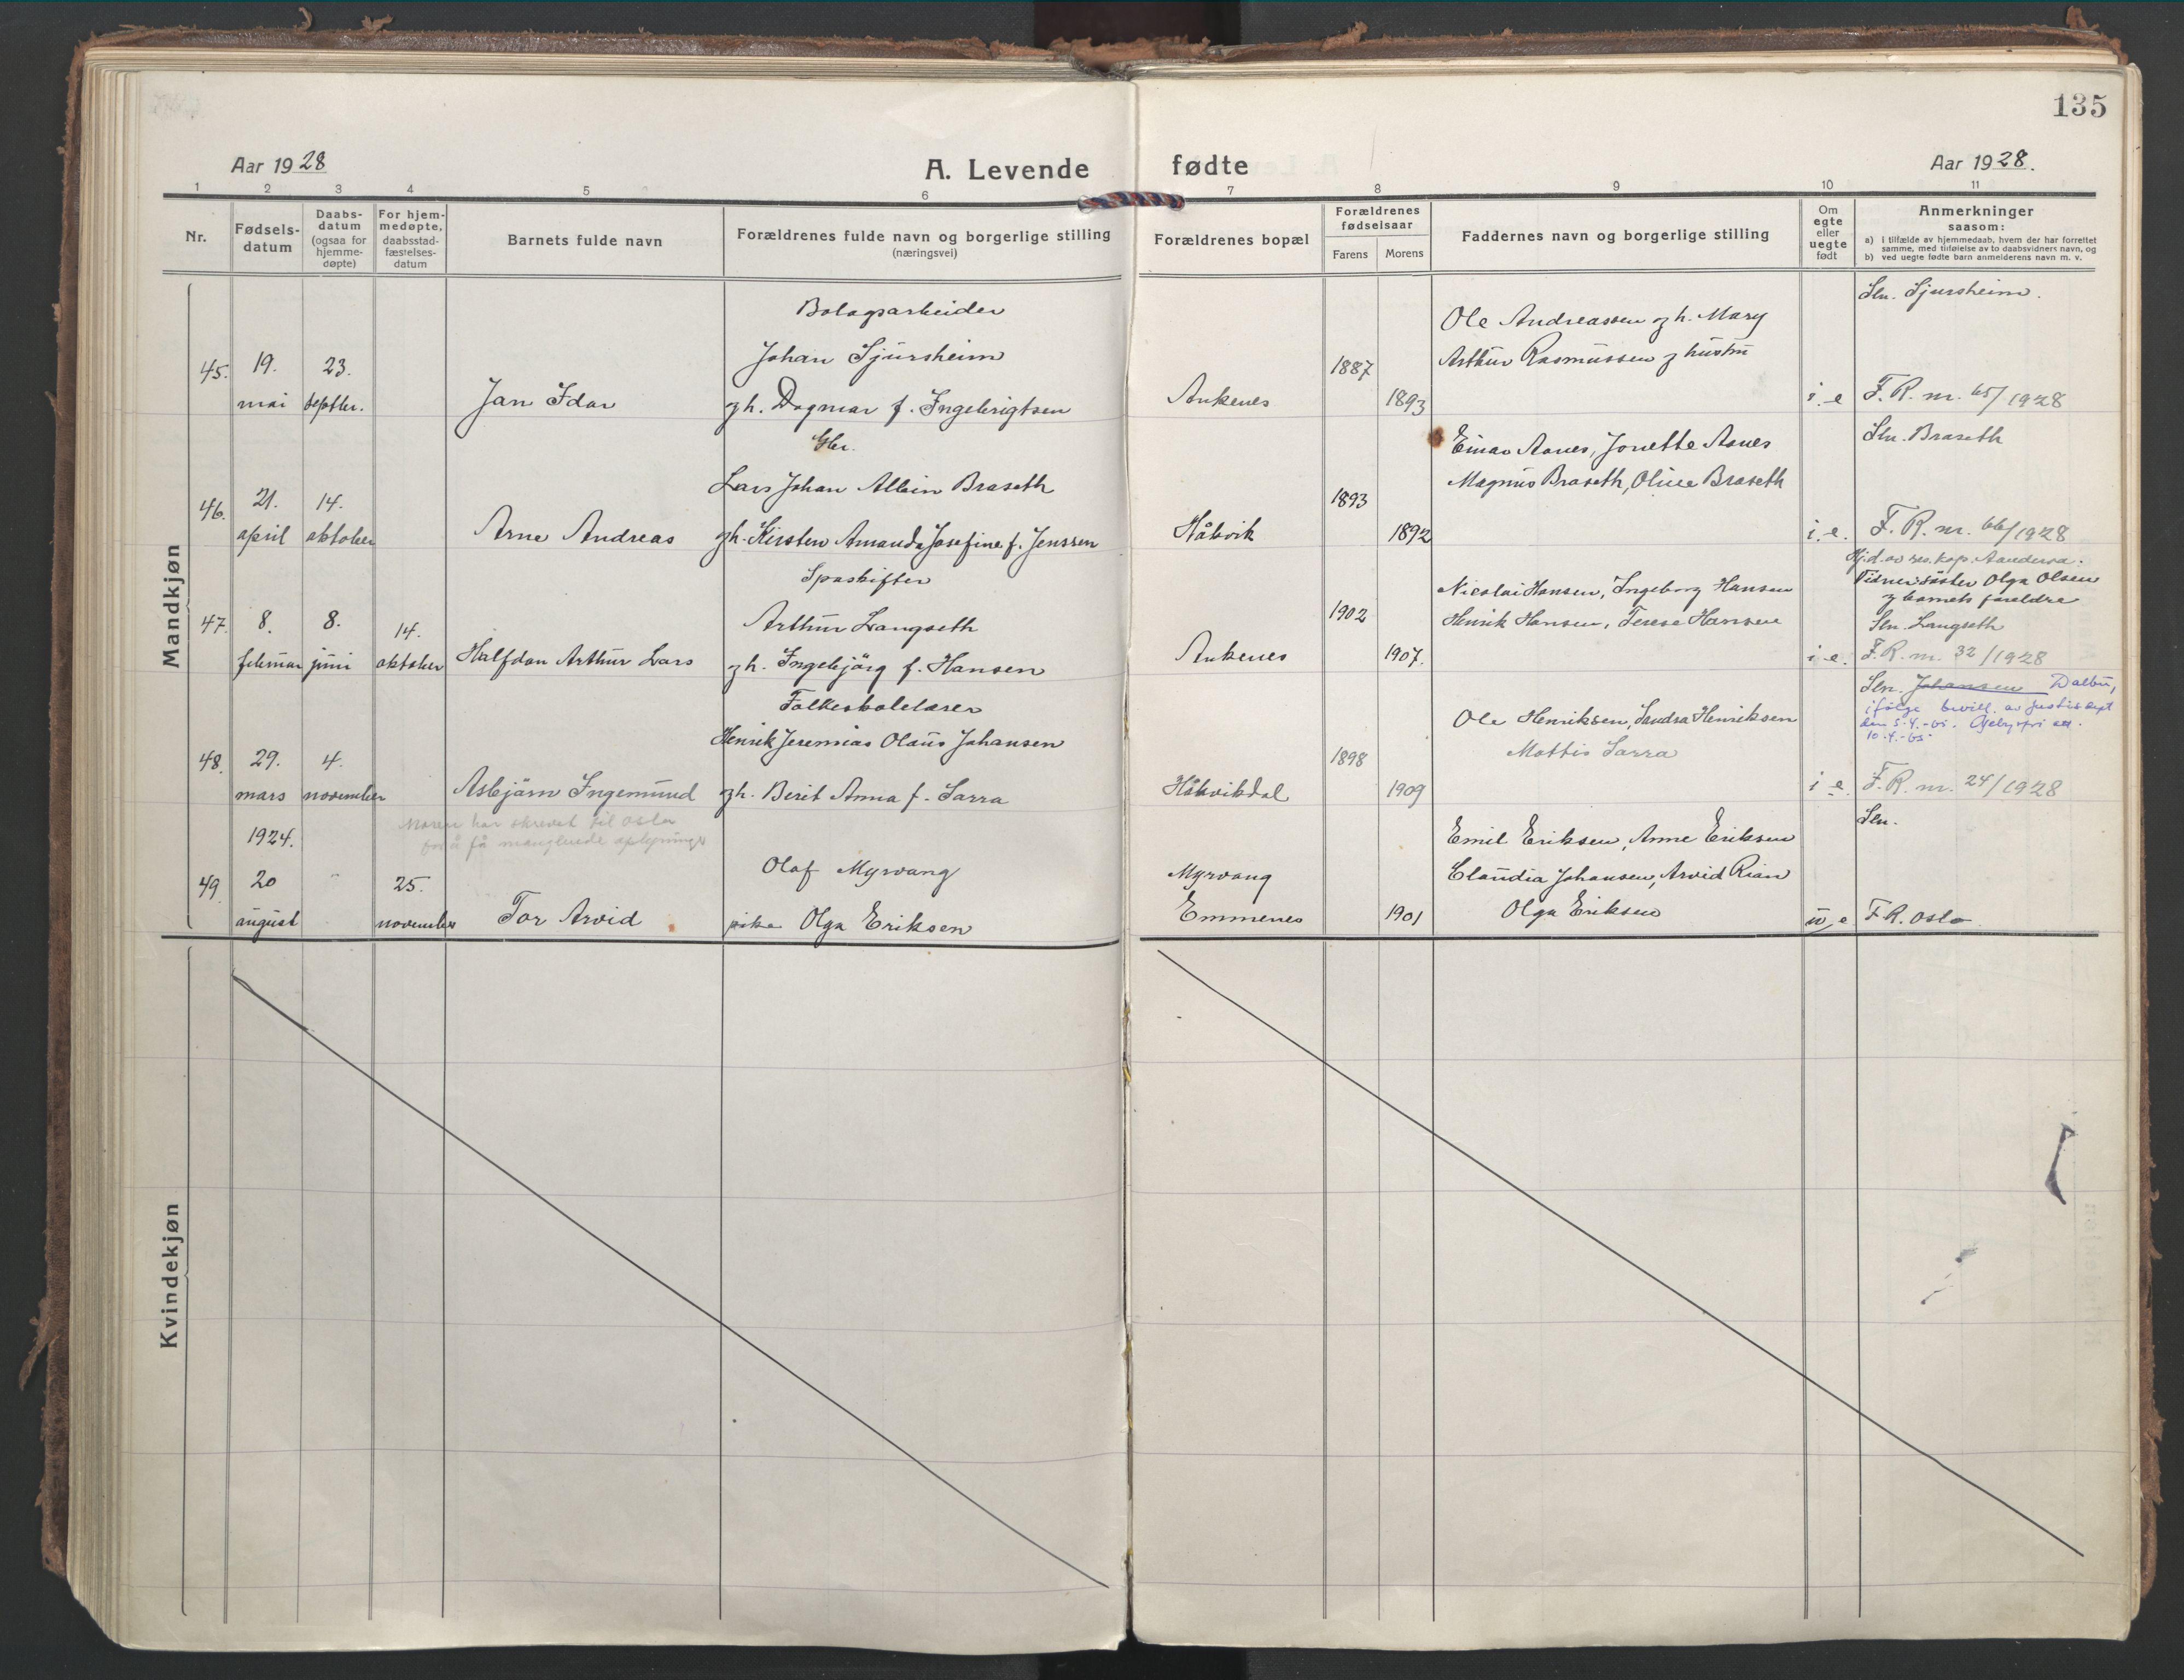 135
Aar 1928
A. Levende fødte
Aar 1928.
1 2 3 4 5 6 7 8 9 10 11
Nr.
Fødsels-
datum
Daabs-
datum
(ogsaa for
hjemme-
døpte)
For hjem-
medøpte,
daabsstad-
fæstelses-
datum
Barnets fulde navn
Forældrenes fulde navn og borgerlige stilling
(næringsvei)
Forældrenes bopæl
Forældrenes
fødselsaar
Farens Morens
Faddernes navn og borgerlige stilling
Om
egte
eller
uegte
født
Anmerkninger
saasom:
a) i tilfælde av hjemmedaab, hvem der har forrettet
samme, med tilføielse av to daabsvidners navn, og
b) ved uegte fødte barn anmelderens navn m. v.
Mandkjøn
45. 19. mai
23. septbr.
Jan Idar
Bolagsarbeider
Johan Sjursheim
gh. Dagmar f. Ingebrigtsen
Ankenes
1887
1893
Ole Andreassen og h. Mary
Arthur Rasmussen og hustru
i. e
Sln. Sjursheim.
F. R. nr. 65/1928
46. 21. april
14. oktober
Arne Andreas
Gbr.
Lars Johan Albin Braseth
gh. Kirsten Amanda Josefine f. Jenssen
Håkvik
1893
1892
Einar Aanes, Jonette Aanes
Magnus Braseth, Oline Braseth
i. e.
Sln. Braseth
F. R. nr. 66/1928
47. 8. februar
8. juni
14. oktober
Halfdan Arthur Lars
Sporskifter
Arthur Langseth
gh. Ingebjørg f. Hansen
Ankenes
1902
1907.
Nicolai Hansen, Ingeborg Hansen
Henrik Hansen, Terese Hansen
i e.
Hj.d. av res. kap. Aandersa.
søster Olga Olsen
og barnets foreldre
Sln. Langseth
F. R. nr. 32/1928
48. 29. mars
4. november
Asbjørn Ingemund
Folkeskolelærer
Henrik Jeremias Olaus Johansen
gh. Berit Anna f. Sarra
Håkvikdal
1898
1909
Ole Henriksen, Sandra Henriksen
Mattis Sarra
i e.
Sln. Johansen Dalbu,
ifølge bevill. av justisdept
den 5.4.-65. Gebyrfri
10.4.-65.
F. R. nr. 24/1928
Moren har skrevet til Oslo
for å få manglende oplysninger
49. 1924.
20 august
25. november
Tor Arvid
Olaf Myrvang
pike Olga Eriksen
Myrvang
Emmenes
1901
Emil Eriksen, Anne Eriksen
Claudia Johansen, Arvid Rian
Olga Eriksen
u. e
Sln.
F. R. Oslo
Kvindekjøn